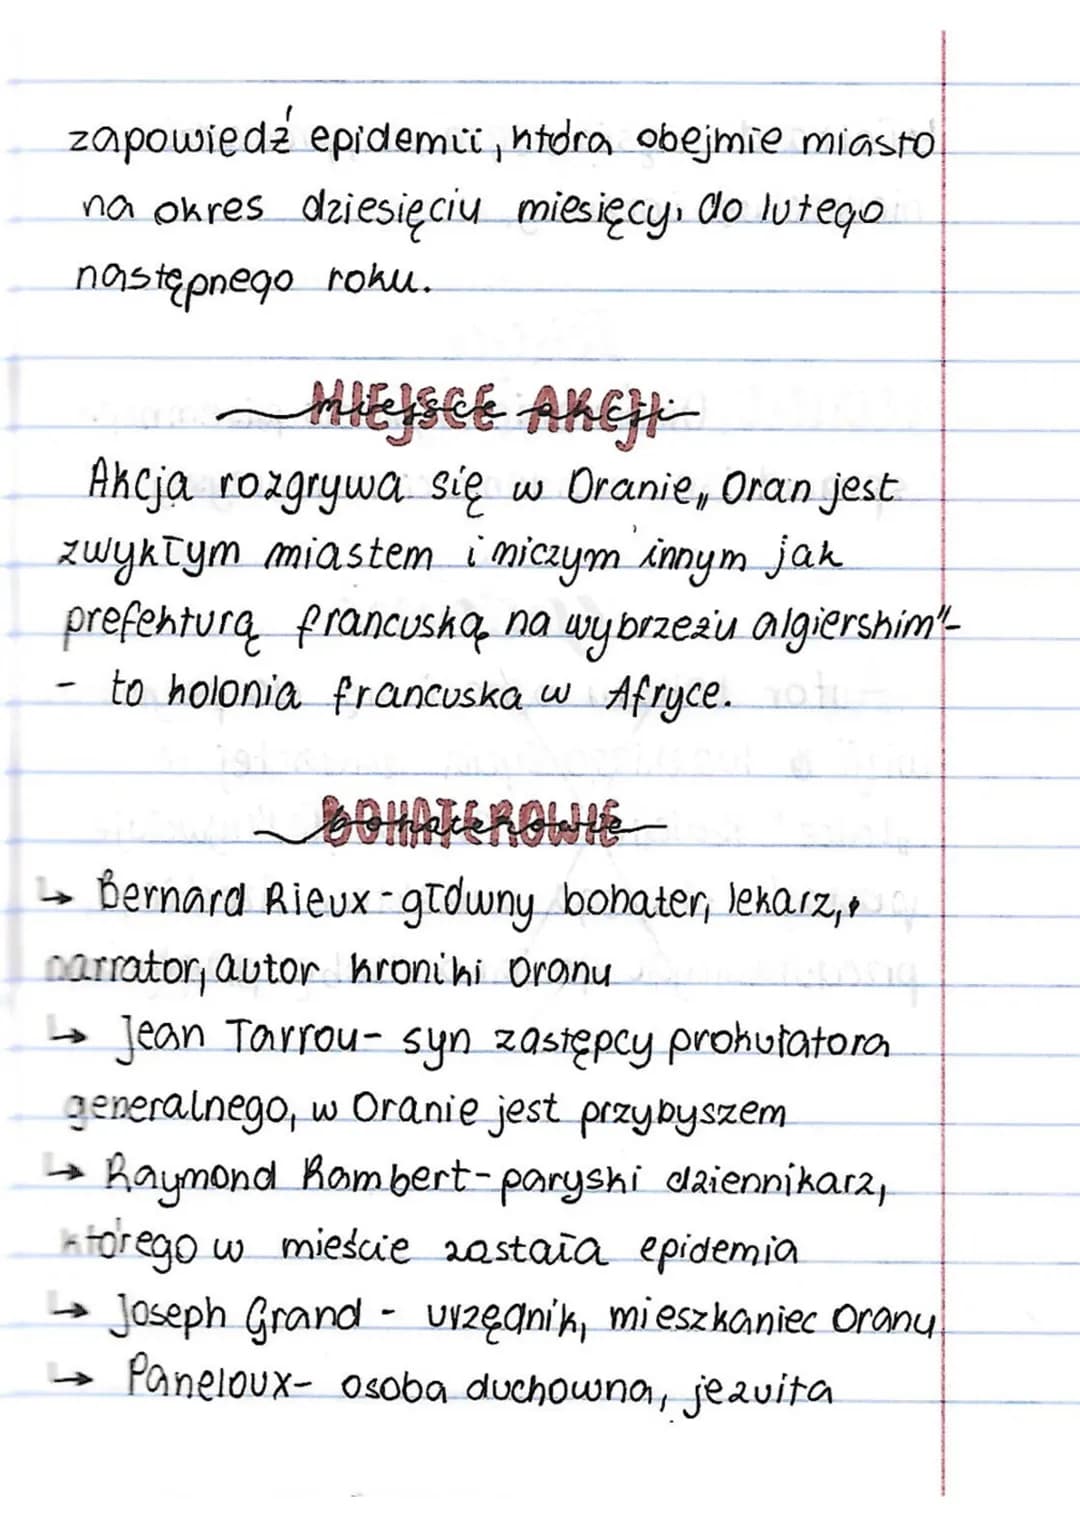 zapowiedź epidemii, która obejmie miasto
na okres dziesięciu miesięcy, do lutego
następnego roku.
MIEJSCE AKCJI
Akcja rozgrywa się w Oranie,, Oran jest
zwykłym miastem i niczym innym jak
prefekturą francuską na wybrzeżu algierskim"-
- to kolonia francuska w Afryce.
BOHATEROWIE
↳ Bernard Rieux - główny bohater, lekarz,
narrator, autor kroniki Oranu
↳ Jean Tarrou- syn zastępcy prokuratora
generalnego, w Oranie jest przybyszem
↳ Raymond Rambert- paryski dziennikarz,
którego w mieście zastała epidemia
↳ Joseph Grand - urzędnik, mieszkaniec Oranu
↳ Paneloux- osoba duchowna, jezuita